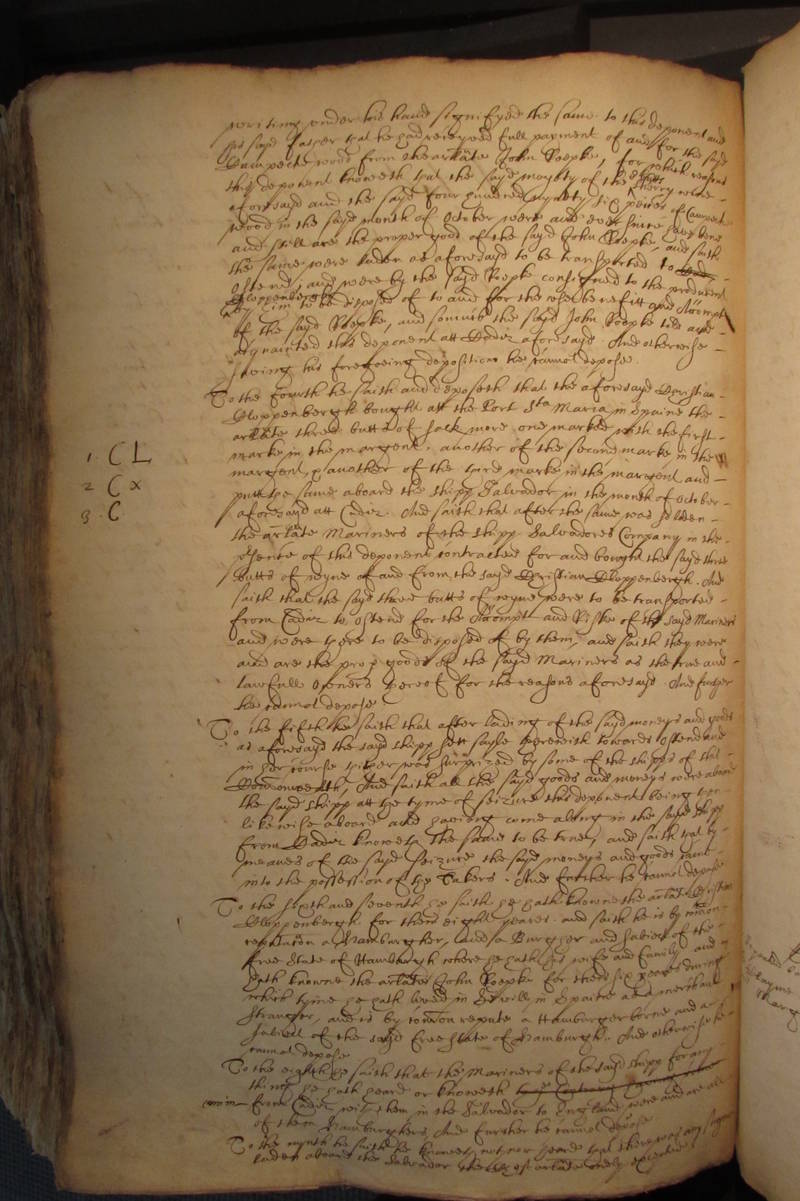 writing under his hand signifyed the same to this deponent and
the sayd Jasper that he had received full payment of and for the sayd
Campeche wood from the arlate John Roepke, for which reasons
this deponent knoweth that the sayd moyety of the butts sherry wine
aforesayd and the sayd four hundred ninety six peeces of Campeche
wood in the sayd month of October were and ever since have bene
and still are the proper goods of the sayd John Roepke, and saith
the same were laden as aforesayd to be transported to
Ostend, and were by the sayd Roepke consigned to the producent
Cloppenbergh to be disposed of to and for the use benefitt and Accompt
of the sayd Roepke, and somuch the sayd John Roepke did
acquainted this deponent att Cadiz aforesayd And otherwise
saving his foregoeing deposition he cannot depose
To the fourth he saith and deposeth that the aforesayd Christian
Cloppenbergh bought att the Port Sta Maria in Spaine the
arlate three butts of sack more one marked with the first
marke in the margent, another of the second marke in the
margent, & another of the third marke in the margent and
putt the same aboard the shipp Salvador in the month of October
aforesayd att Cadiz. And saith that after the same was
the arlate Mariners of the shipp Salvadores Company in the
presence of this deponent contracted for and bought the sayd three
butts of wyne of and from the sayd Christian Cloppenbergh. And
saith that the sayd three butts of wyne were to be transported
from Cadiz to Ostend for the Accompt and Riske of the sayd Mariners
and were there to be disposed of by them, and saith they were
and are the proper goods of the sayd Mariners as the true and
lawfull owners thereof for the reasons aforesayd. And further
he cannot depose
1 CL
2 C x
3 C
To the fifth he saith that after lading of the sayd moneys and goods
as aforesayd the sayd shipp sett sayle therewith towards Ostend and
in her course thither was surprized by some of the shipps of this
Commonwealth, And saith all the sayd goods and moneys were aboard
the sayd shipp att the tyme of seizure this deponent being then
likewise aboard and haveing come along in the sayd shipp
from Cadiz knoweth the same to be true, and saith that by
meanes of the sayd seizure the sayd moneys and goods came
into the possession of the Takers. And further he cannot depose
To the sixth and seventh he saith he hath knowne the arlate Christian
Cloppenbergh for these eight yeares and saith he is by common
reputation a Hamburgher, and a Burgher and subject of the
free State of Hamburgh where he hath his wife and family, and
hath knowne the arlate John Roepke for these six yeares during
which tyme he hath lived in Seville in Spaine as a merchant
stranger, and is by common repute a Hamburgher borne and a
subject of the sayd free state of Hamburgh. And otherwise he
cannot depose
To the eighth he saith that the Mariners of the sayd shipp for any
thing he hath heard or knoweth
from Cadiz with them in the Salvador to England were and are all
of them Hamburghers, And further he cannot depose
To the nynth he saith he knoweth not nor heard that there was any
laden aboard the Salvador the arlate onely excepted